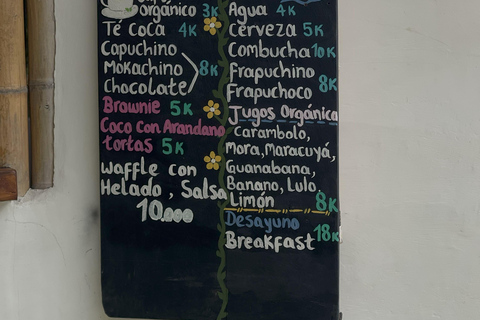 orgánico 3K
Té Coca 4K
Capuchino
Mokachino 8K
Chocolate
Brownie 5K
Coco Con Arandano
tortas 5K
Waffle con
Helado, Salsa
10.000
Agua 4K
Cerveza 5K
Combucha 10K
Frapuchino
Frapuchoco 8K
Jugos Orgánica
Carambolo,
Mora, Maracuyá,
Guanabana,
Banano, Lulo,
Limón 8K
Desayuno
Breakfast 18K